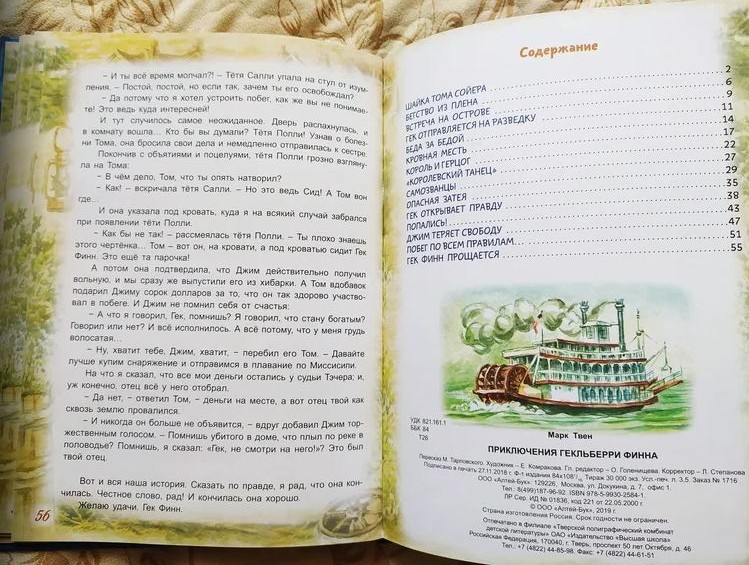 – И ты всё время молчал?! – Тётя Салли упала на стул от изум-
ления. – Постой, постой, но если так, зачем ты его освобождал?
– Да потому что я хотел устроить побег, как же вы не понимае-
те! Это ведь куда интересней!
И тут случилось самое неожиданное. Дверь распахнулась, и
в комнату вошла... Кто бы вы думали? Тётя Полли! Узнав о болез-
ни Тома, она бросила свои дела и немедленно отправилась к сестре.
Покончив с объятиями и поцелуями, тётя Полли грозно взгляну-
ла на Тома:
– В чём дело, Том, что ты опять натворил?
– Как! – вскричала тётя Салли. – Но это ведь Сид! А Том вон
где...
И она указала под кровать, куда я на всякий случай забрался
при появлении тёти Полли.
– Как бы не так! – рассмеялась тётя Полли. – Ты плохо знаешь
этого чертёнка... Том – вот он, на кровати, а под кроватью сидит Гек
Финн. Это ещё та парочка!
А потом она подтвердила, что Джим действительно получил
вольную, и мы сразу же выпустили его из хибарки. А Том вдобавок
подарил Джиму сорок долларов за то, что он так здорово участво-
вал в побеге. И Джим не помнил себя от счастья:
– А что я говорил, Гек, помнишь? Я говорил, что стану богатым?
Говорил или нет? И всё исполнилось. А всё потому, что у меня грудь
волосатая...
– Ну, хватит тебе, Джим, хватит, – перебил его Том. – Давайте
лучше купим снаряжение и отправимся в плавание по Миссисипи.
На что я сказал, что все мои деньги остались у судьи Тэчера; и,
уж конечно, отец всё у него отобрал.
– Да нет, – ответил Том, – деньги на месте, а вот отец твой как
сквозь землю провалился.
– И никогда он больше не объявится, – вдруг добавил Джим тор-
жественным голосом. – Помнишь убитого в доме, что плыл по реке в
половодье? Помнишь, я сказал: «Гек, не смотри на него!»? Это был
твой отец.
Вот и вся наша история. Сказать по правде, я рад, что она кон-
чилась. Честное слово, рад! И кончилась она хорошо.
Желаю удачи. Гек Финн.
56
Содержание
ШАЙКА ТОМА СОЙЕРА 2
БЕГСТВО ИЗ ПЛЕНА 6
ВСТРЕЧА НА ОСТРОВЕ 9
ГЕК ОТПРАВЛЯЕТСЯ НА РАЗВЕДКУ 11
БЕДА ЗА БЕДОЙ 14
КРОВНАЯ МЕСТЬ 17
КОРОЛЬ И ГЕРЦОГ 22
«КОРОЛЕВСКИЙ ТАНЕЦ» 27
САМОЗВАНЦЫ 29
ОПАСНАЯ ЗАТЕЯ 35
ГЕК ОТКРЫВАЕТ ПРАВДУ 38
ПОПАЛИСЬ! 43
ДЖИМ ТЕРЯЕТ СВОБОДУ 47
ПОБЕГ ПО ВСЕМ ПРАВИЛАМ 51
ГЕК ФИНН ПРОЩАЕТСЯ 55
УДК 821.161.1
ББК 84
Т26
Марк Твен
ПРИКЛЮЧЕНИЯ ГЕКЛЬБЕРРИ ФИННА
Пересказ М. Тарловского. Художник – Е. Комракова. Гл. редактор – О. Голенищева. Корректор – Л. Степанова
Подписано в печать 27.11.2018 г. Ф-т издания 84х108 1/16 Тираж 30 000 экз. Усл.-печ. л. 3,5. Заказ № 1716
ООО «Алтей-Бук», 129226, Москва, ул. Докукина, д. 7, офис 1.
Тел.: 8(499)187-96-92. ISBN 978-5-9930-2584-1
ЛР Сер. ИД № 01836, код 221 от 22.05.2000 г.
© ООО «Алтей-Бук», 2019 г.
Страна изготовления Россия. Срок годности не ограничен.
Отпечатано в филиале «Тверской полиграфический комбинат
детской литературы» ОАО «Издательство «Высшая школа»
Российская Федерация, 170040, г. Тверь, проспект 50 лет Октября, д. 46
Тел.: +7 (4822) 44-85-98. Факс: +7 (4822) 44-61-51